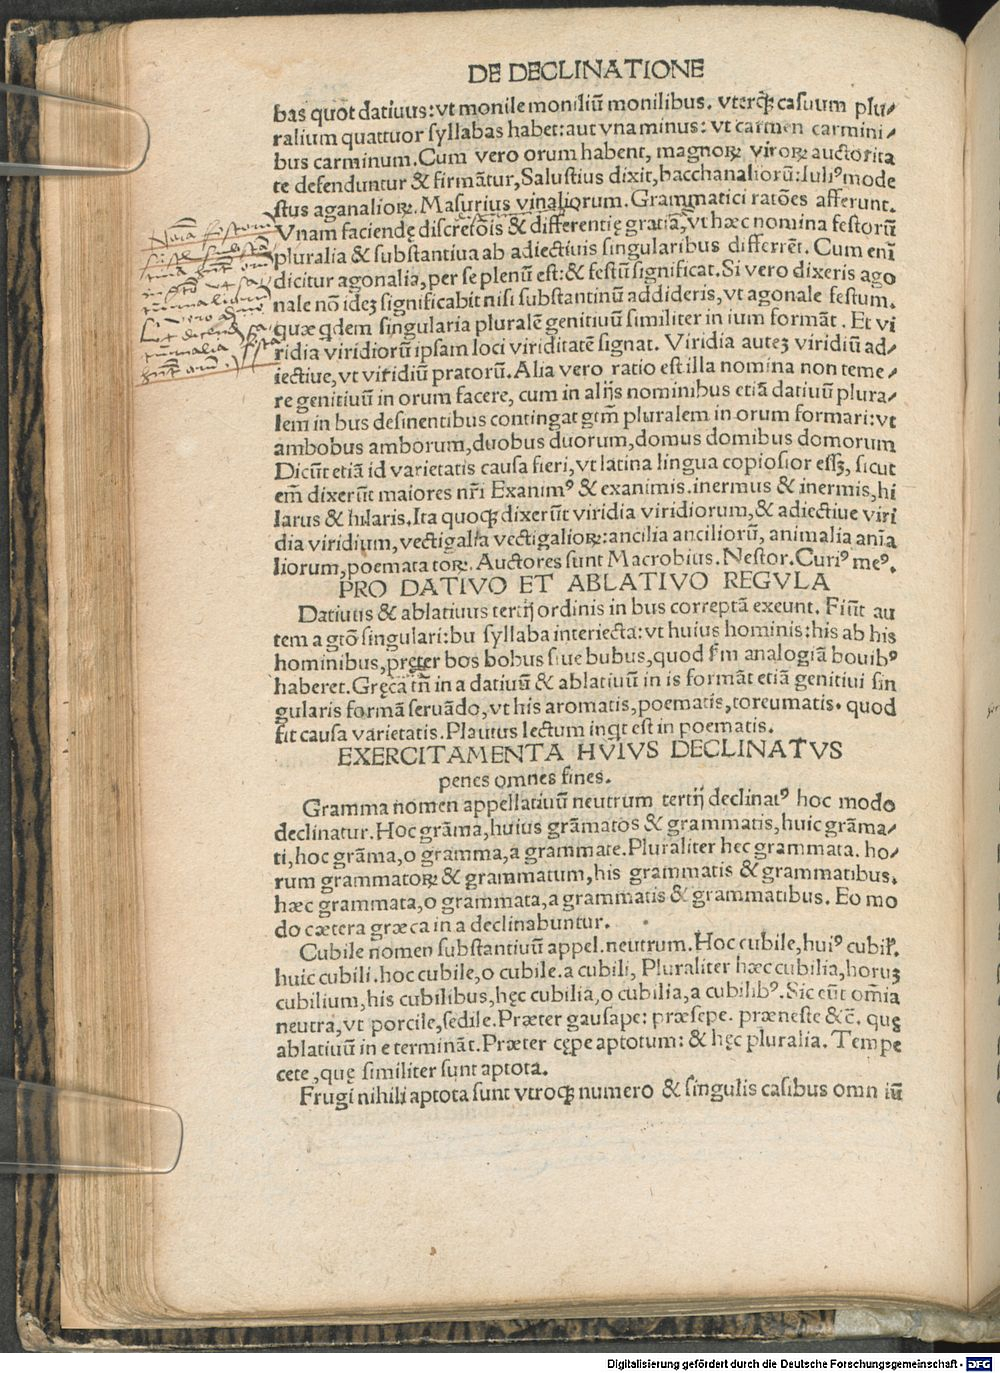 DE DECLINATIONE
bas quot datiuus: vt monile moniliū monilibus. vterqꝫ casuum plu⸗
ralium quattuor syllabas habet: aut vna minus: vt carmen carmini⸗
bus carminum. Cum vero orum habent, magnoꝝ viroꝝ auctorita
te defenduntur & firmātur, Salustius dixit, bacchanaliorū: Iuliꝰ mode
stus aganalioꝝ. Masurius vinaliorum. Grammatici ratōes afferunt.
Vnam faciendę discretōis & differentię gratiā, vt hæc nomina festorū
pluralia & substantiua ab adiectiuis singularibus differrēt. Cum enī
dicitur agonalia, per se plenū est: & festū significat. Si vero dixeris ago
nale nō ideꝫ significabit nisi substantinū addideris, vt agonale festum.
quæ qdem singularia pluralē genitiuū similiter in ium formāt. Et vi
ridia viridiorū ipsam loci viriditatē signat. Viridia auteꝫ viridiū ad⸗
iectiue, vt viridiū pratorū. Alia vero ratio est illa nomina non teme⸗
re genitiuū in orum facere, cum in alijs nominibus etiā datiuū plura⸗
lem in bus desinentibus contingat gtm̄ pluralem in orum formari: vt
ambobus amborum, duobus duorum, domus domibus domorum
Dicūt etiā id varietatis causa fieri, vt latina lingua copiosior essꝫ, sicut
em̄ dixerūt maiores nr̄i Exanimꝰ & exanimis. inermus & inermis, hi
larus & hilaris. Ita quoqꝫ dixerūt viridia viridiorum, & adiectiue viri
dia viridium, vectigalia vectigalioꝝ: ancilia anciliorū, animalia anīa
liorum, poemata toꝝ. Auctores sunt Macrobius. Nestor. Curiꝰ meꝰ.
PRO DATIVO ET ABLATIVO REGVLA
Datiuus & ablatiuus tertij ordinis in bus correptā exeunt. Fiūt au
tem a gtō singulari: bu syllaba interiecta: vt huius hominis: his ab his
hominibus, pręter bos bobus siue bubus, quod s̄m analogiā bouibꝰ
haberet. Gręca tn̄ in a datiuū & ablatiuū in is formāt etiā genitiui sin
gularis formā seruādo, vt his aromatis, poematis, toreumatis. quod
fit causa varietatis. Plautus lectum inqt est in poematis.
EXERCITAMENTA HVIVS DECLINATVS
penes omnes fines.
Gramma nomen appellatiuū neutrum tertij declinatꝰ hoc modo
declinatur. Hoc grāma, huius grāmatos & grammatis, huic grāma⸗
ti, hoc grāma, o gramma, a grammate. Pluraliter hec grammata. ho⸗
rum grammatoꝝ & grammatum, his grammatis & grammatibus.
hæc grammata, o grammata, a grammatis & grammatibus. Eo mo
do cætera græca in a declinabuntur.
Cubile nomen substantiuū appel. neutrum. Hoc cubile, huiꝰ cubil̓.
huic cubili. hoc cubile, o cubile. a cubili, Pluraliter hæc cubilia, horuꝫ
cubilium, his cubilibus, hęc cubilia, o cubilia, a cubilibꝰ. Sic eūt om̄ia
neutra, vt porcile, sedile. Præter gausape: præsepe. præneste &c̄. quę
ablatiuū in e termināt. Præter cępe aptotum: & hęc pluralia. Tempe
cete, quę similiter sunt aptota.
Frugi nihili aptota sunt vtroqꝫ numero & singulis casibus omn iū
Digitalisierung gefördert durch die Deutsche Forschungsgemeinschaft - DFG